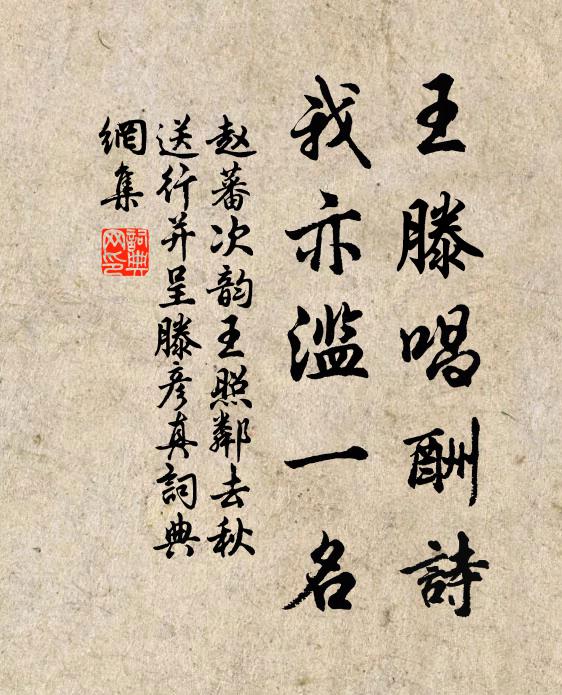 王滕唱酬詩
我亦滥一名
赵蕃次韵王照鄰去秋
送行并呈滕彦真詞典
網集
詞典
网印